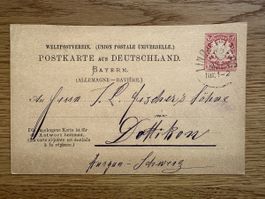 WELTPOSTVEREIN. (UNION POSTALE UNIVERSELLE.)
POSTKARTE AUS DEUTSCHLAND.
BAYERN.
(ALLEMAGNE – BAVIÈRE.)
An Herrn J. L. Fischer's Söhne
Die angebogene Karte ist für
Antwort bestimmt.
(La carte ci-jointe est destinée
à la réponse.)
in
Dottikon
Aargau - Schweiz